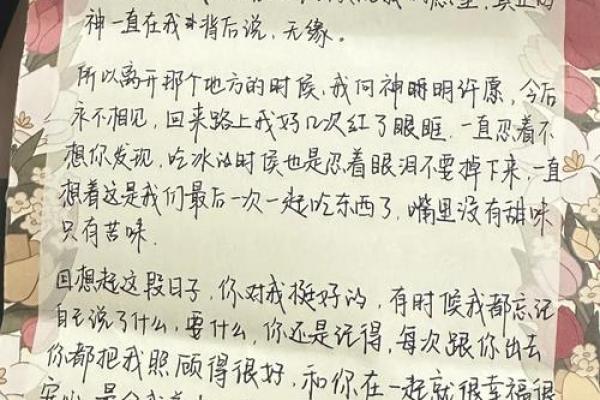 神一直在我背后说，无缘。
所以离开那个地方的时候，我向神明许愿，今后
永不相见，回来路上我好几次红了眼眶，一直忍着不
想你发现，吃冰的时候也是忍着眼泪不要掉下来，一直
想着这是我们最后一次一起吃东西了，嘴里没有甜味
只有苦味．
回想起这段日子，你对我挺好的，有时候我都忘记
自己说了什么，要什么，你还是记得，每次跟你出去
你都把我照顾得很好，和你在一起就很幸福很